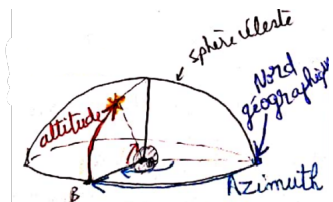 sphère céleste
Nord
géographique
altitude
Azimuth
B